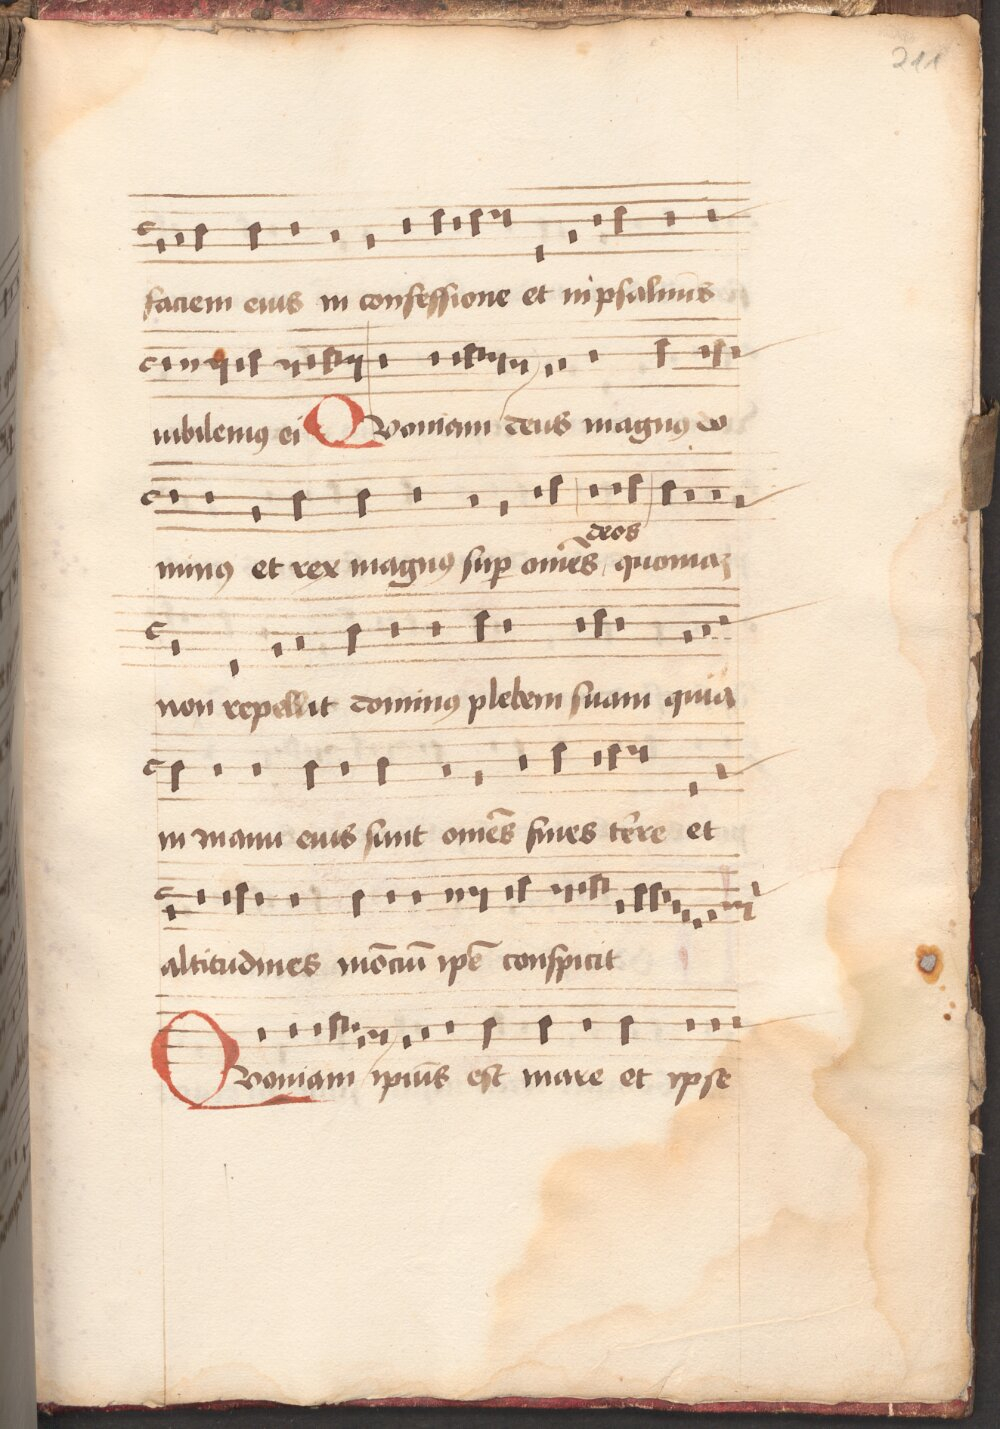 211
faciem eius in confessione et in psalmis
iubilemꝯ ei Quoniam deus magnꝯ do
minꝯ et rex magnꝯ suꝑ om̄es deos quoniaꝫ
non repellit dominꝯ plebem suam quia
in manu eius sunt om̄es fines terre et
altitudines mōciū ip̄e conspicit
Quoniam ipiūs est mare et ipse